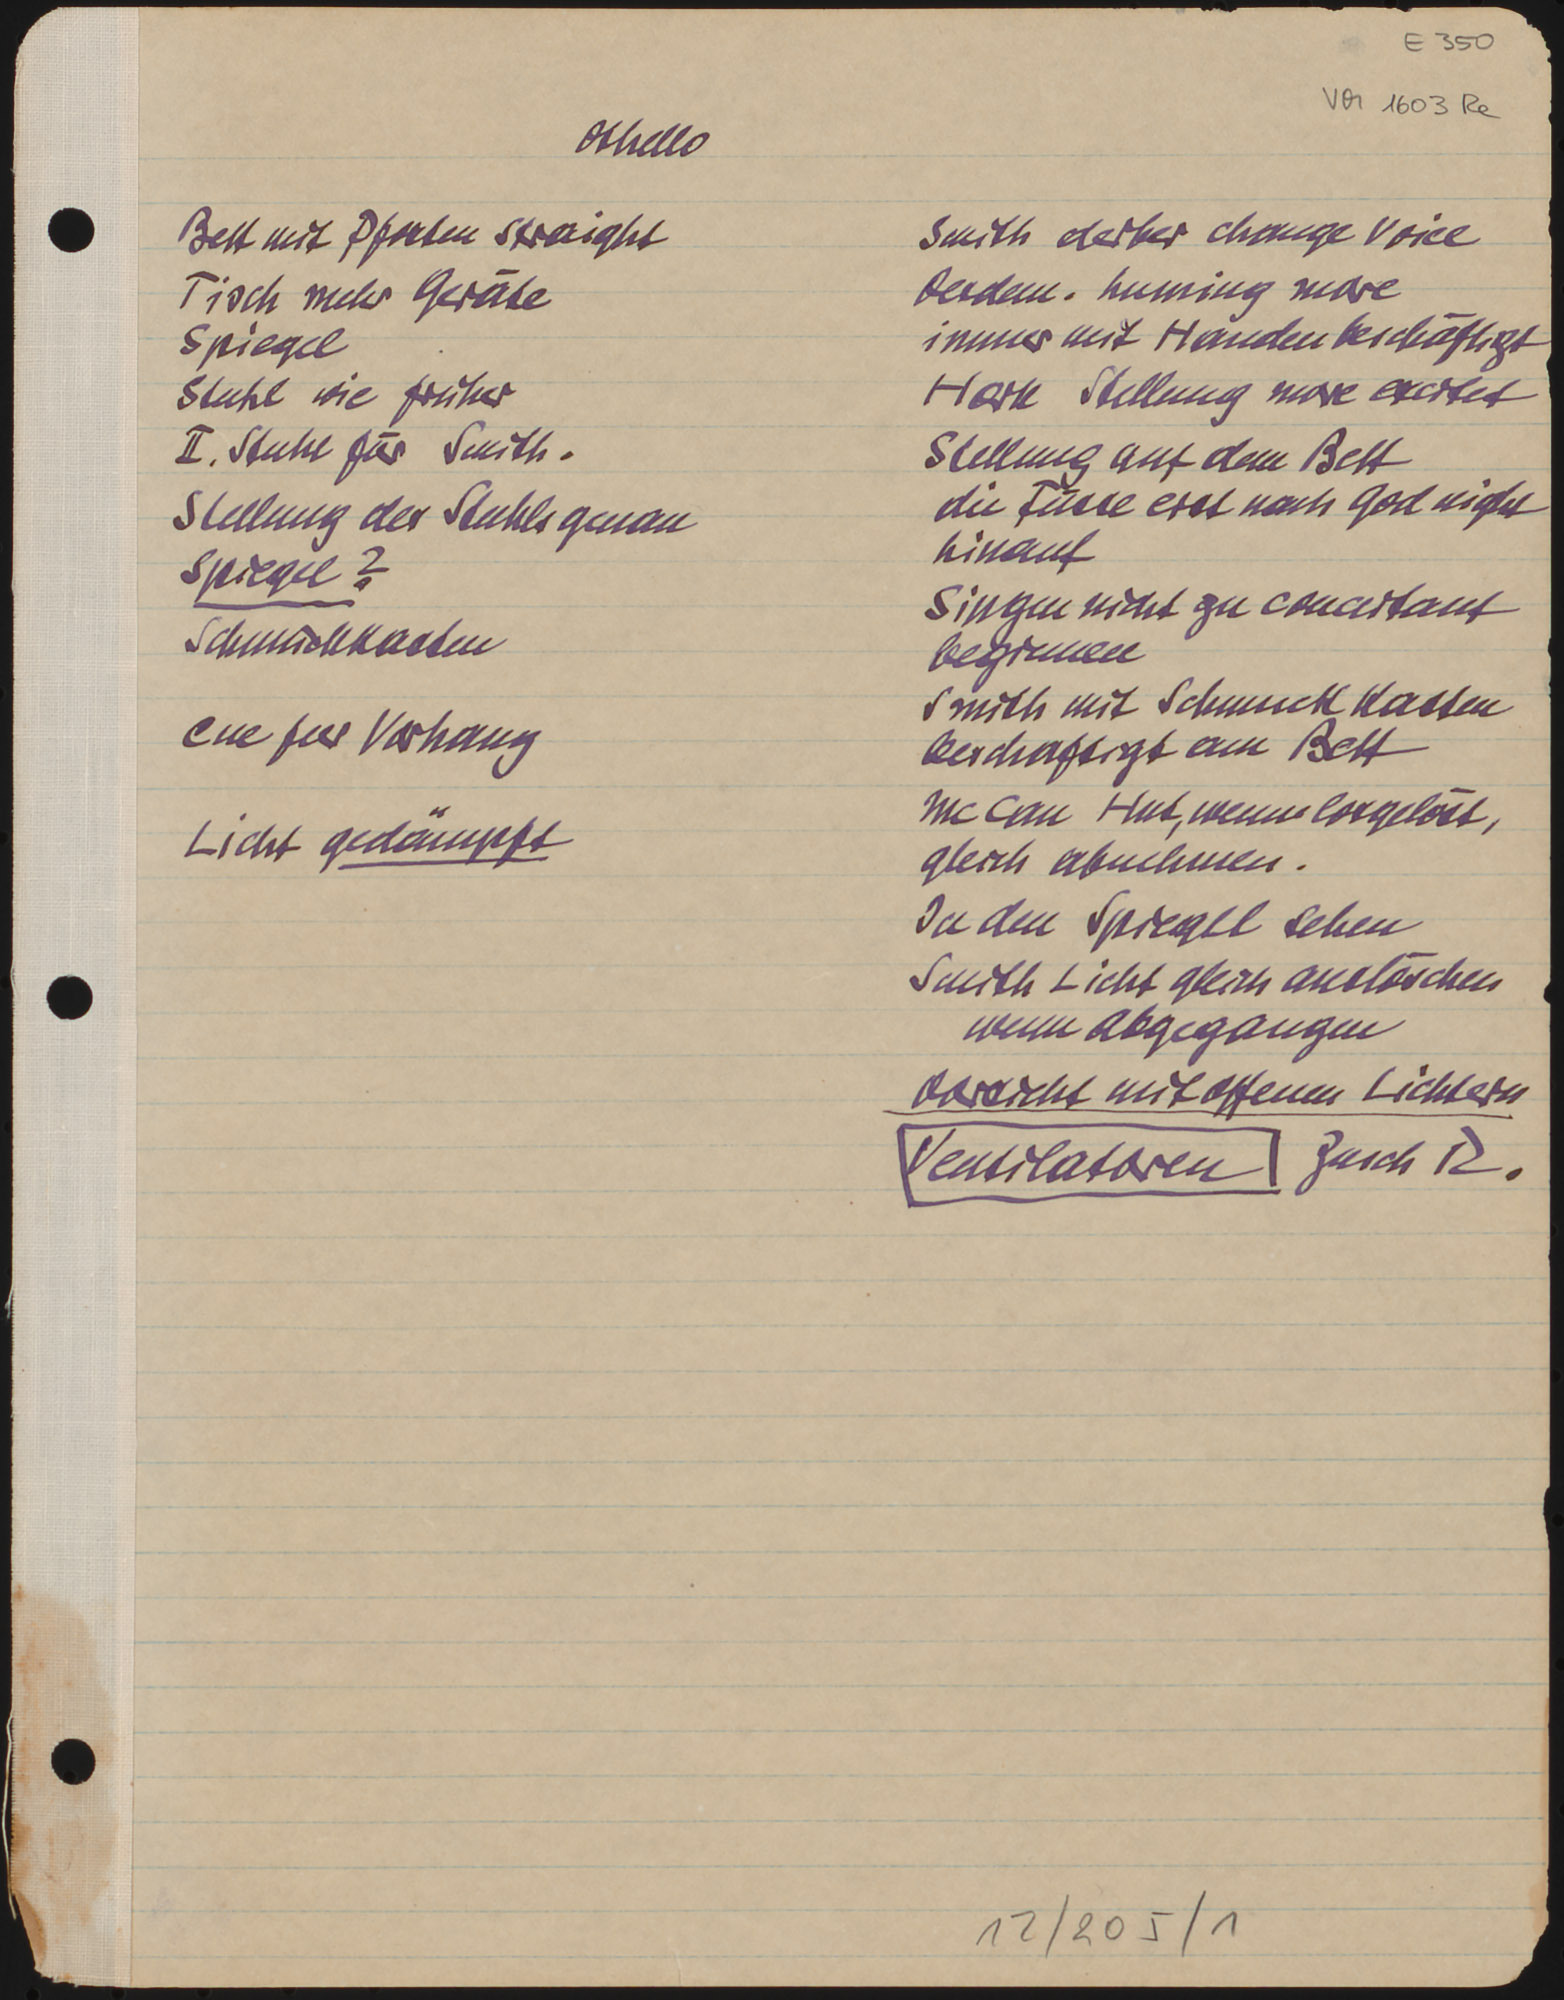 E 350
VM 1603 Re
Othello
Bett mit Pfosten straight
Tisch mehr Geräte
Spiegel
Stuhl wie früher
II. Stuhl für Smith.
Stellung der Stuhls genau
Spiegel?
Schmuckkasten
cue fur Vorhang
Licht gedämpft
Smith derber change Voice
Desdem. huming more
immer mit Handen beschäftigt
Hark Stellung more excitet
Stellung auf dem Bett
die Füsse erst nach god night
hinauf
Singen nicht zu concertant
beginnen
Smith mit Schmuck Kasten
beschaftigt am Bett
Mc Can Hut, wenn losgelöst,
gleich abnehmen.
In den Spiegel sehen
Smith Licht gleich auslöschen
wenn abgegangen
Vorsicht mit offenen Lichtern
Ventilatoren Zusch R.
12/205/1